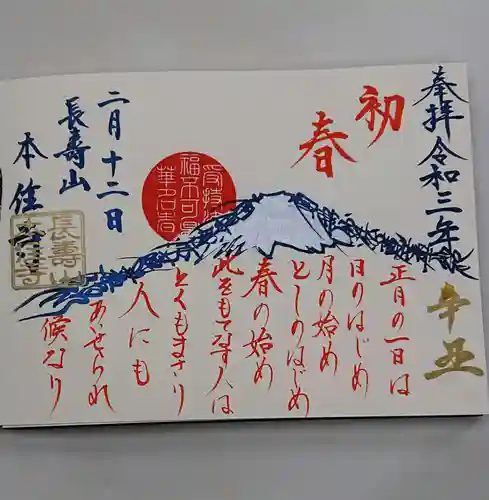 奉拝令和三年
辛丑
初春
正月の一日は
日のはじめ
月の始め
としのはじめ
春の始め
此をもてなす人は
とくもまさり
人にも
あいせられ
候なり
二月十二日
長壽山
本住寺
受持
福不可量
華名者
長壽山